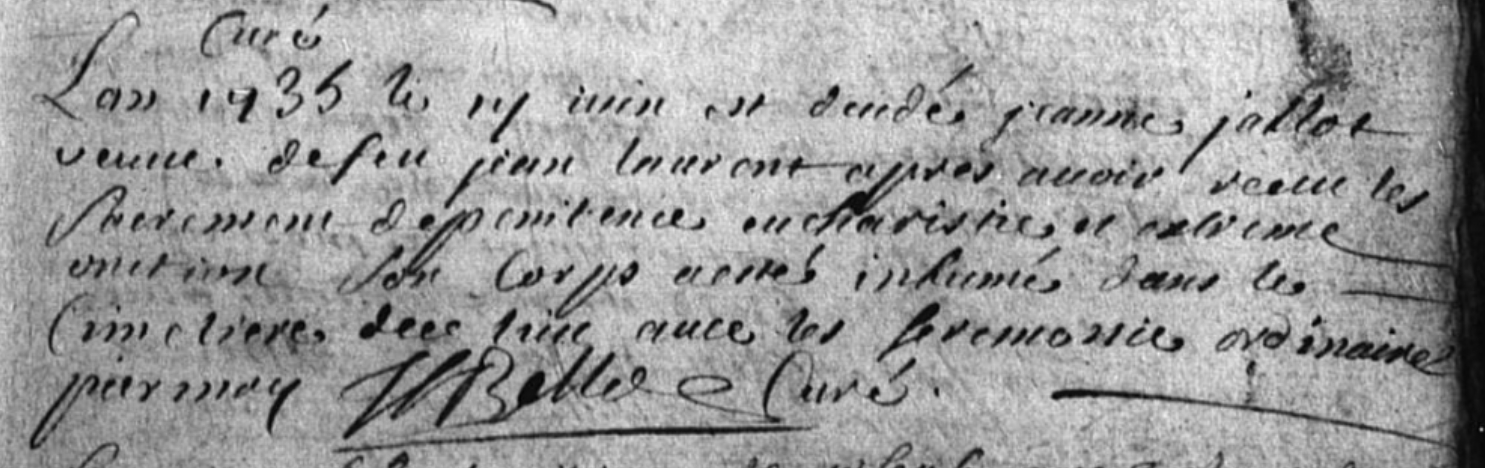 Curé
Lan 1735 le juin est decedé jeanne jallot
veuue de feu jean lauront apres auoir receu les
sacrement de penitence eucharistie et extreme
onction son Corps a esté inhumé dans le
Cimetiere de ce lieu auec les seremonie ordinaire
par moy Belle Curé.